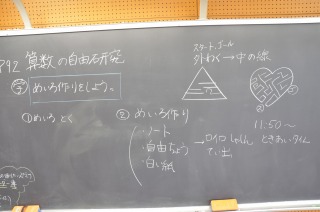 P92 算数の自由研究
めいろ作りをしよう。
①めいろ とく
② めいろ作り
・ノート
・自由ちょう
・白い紙
→ロイロ しゃしん
てい出。
スタート、ゴール
外わく→中の線
11:50〜
ときあいタイム